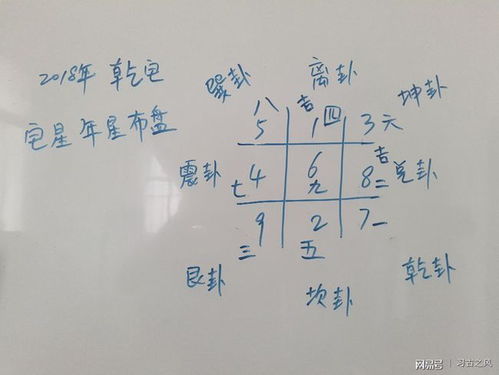 2018年 乾宅
宅星年星布盘
巽卦 离卦 坤卦
八 吉 四
5 1 3 六
吉
震卦 七 4 6 8 二 兑卦
九
9 2 7 一
三 五
艮卦 坎卦 乾卦
网易号 | 习古之风